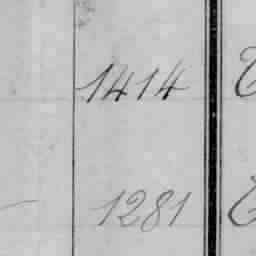 1414
1281